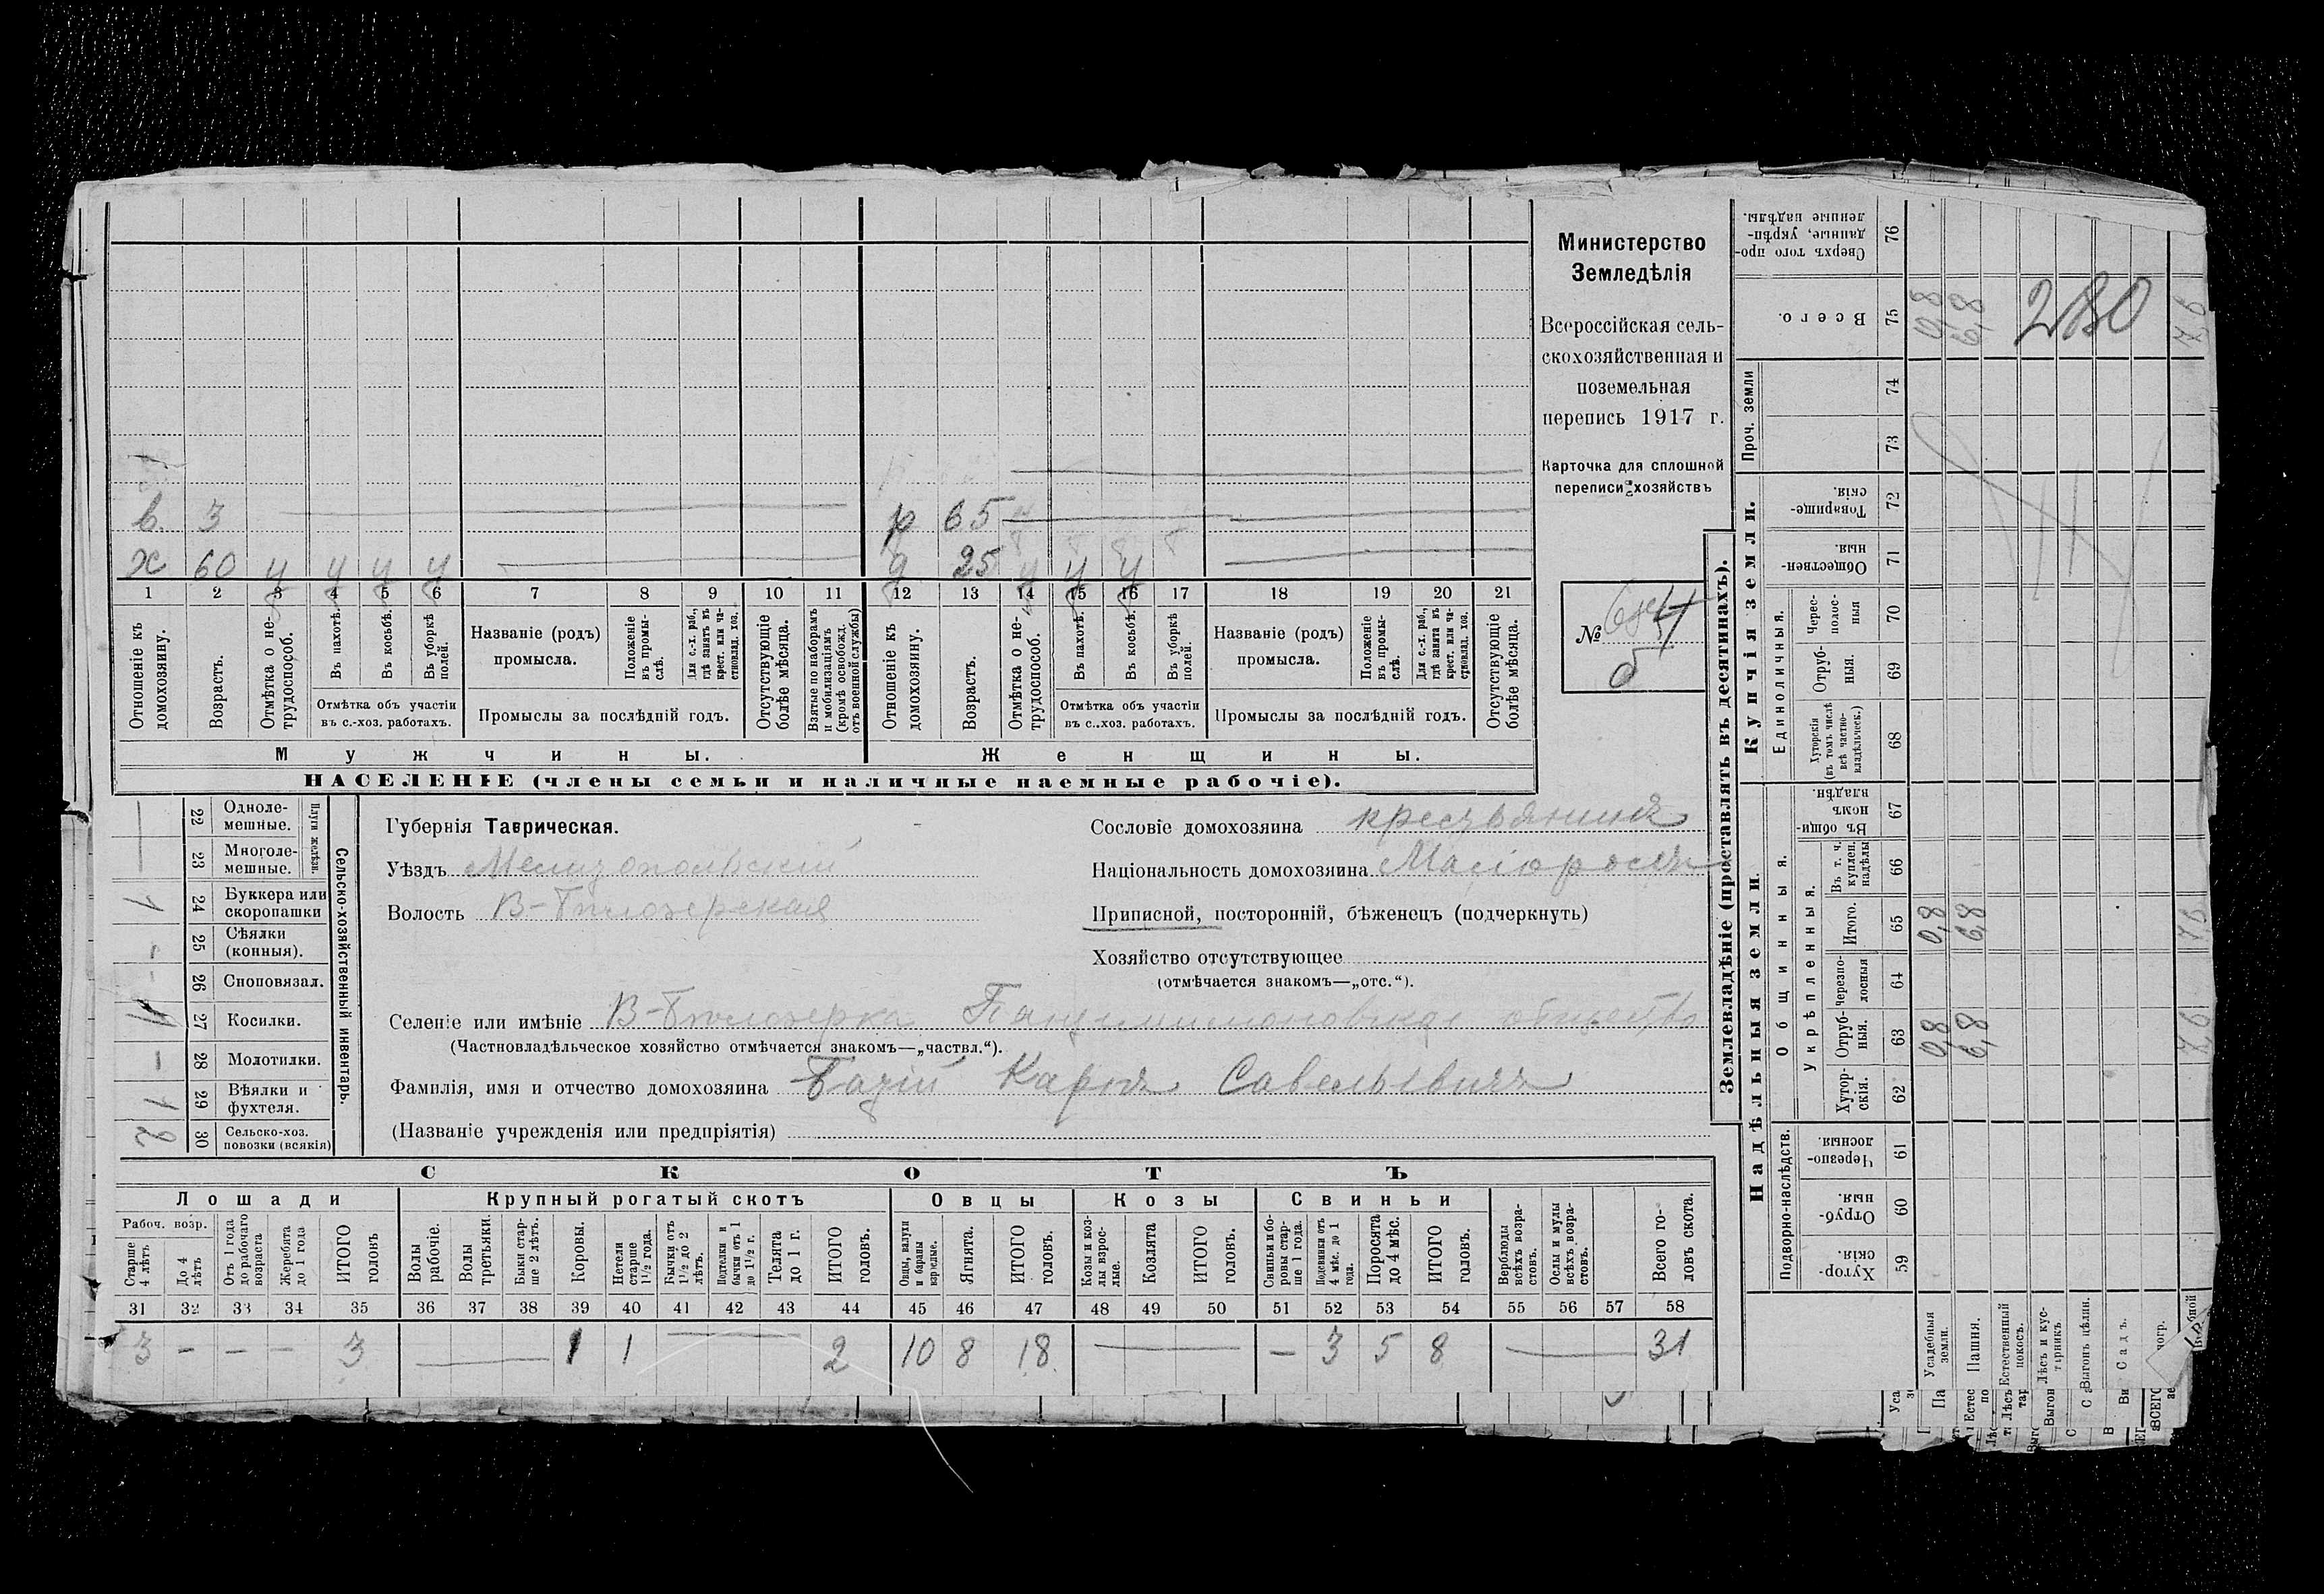 Министерство
Земледѣлія
Всероссійская сель-
скохозяйственная и
поземельная
перепись 1917 г.
Карточка для сплошной
переписи хозяйствъ
№ 4
в. 3 р 65
х 60 ч ч ч ч д 25 ч ч ч
1 2 3 4 5 6 7 8 9 10 11 12 13 14 15 16 17 18 19 20 21
Отношеніе къ домохозяину.
Возрастъ.
Отмѣтка о не-трудоспособ.
Въ пахотѣ.
Въ косьбѣ.
Въ уборкѣ полей.
Отмѣтка объ участіи
въ с.-хоз. работахъ.
Названіе (родъ)
промысла.
Положеніе въ промы-слѣ.
Для с.-х. раб., гдѣ занятъ въ крест. или ча-стновлад. хоз.
Промыслы за послѣдній годъ.
Отсутствующіе болѣе мѣсяца.
Взятые по наборамъ и мобилизаціямъ (кромѣ освобожд. отъ военной службы)
Отношеніе къ домохозяину.
Возрастъ.
Отмѣтка о не-трудоспособ.
Въ пахотѣ.
Въ косьбѣ.
Въ уборкѣ полей.
Отмѣтка объ участіи
въ с.-хоз. работахъ.
Названіе (родъ)
промысла.
Положеніе въ промы-слѣ.
Для с.-х. раб., гдѣ занята въ крест. или ча-стновлад. хоз.
Промыслы за послѣдній годъ.
Отсутствующіе болѣе мѣсяца.
Мужчины. Женщины.
НАСЕЛЕНІЕ (члены семьи и наличные наемные рабочіе).
Сельско-хозяйственный инвентарь.
Плуги желѣзн.
22 Одноле-мешные.
23 Многоле-мешные.
1 24 Буккера или скоропашки
- 25 Сѣялки (конныя).
- 26 Сноповязал.
27 Косилки.
- 28 Молотилки.
1 29 Вѣялки и фухтеля.
2 30 Сельско-хоз. повозки (всякія)
Губернія Таврическая.
Уѣздъ Мелитопольскій
Волость В-Бѣлозерская
Сословіе домохозяина крестьянинъ
Національность домохозяина Малороссъ
Приписной, посторонній, бѣженецъ (подчеркнуть)
Хозяйство отсутствующее
(отмѣчается знакомъ—„отс.“).
Селеніе или имѣніе В-Бѣлозерка Пантелимоновское общество
(Частновладѣльческое хозяйство отмѣчается знакомъ—„частвл.“).
Фамилія, имя и отчество домохозяина Карпъ Савельевичъ
(Названіе учрежденія или предпріятія)
СКОТЪ
Лошади Крупный рогатый скотъ Овцы Козы Свиньи
Рабоч. возр.
Старше 4 лѣтъ
До 4 лѣтъ
Отъ 1 года до рабочаго возраста
Жеребята до 1 года
ИТОГО головъ
Волы рабочіе.
Волы третьяки.
Быки стар-ше 2 лѣтъ.
Коровы.
Нетели старше 1½ года.
Бычки отъ 1½ до 2 лѣтъ.
Подтелки и бычки отъ 1 до 1½ г.
Телята до 1 г.
ИТОГО головъ.
Овцы, валухи и бараны взрослые.
Ягнята.
ИТОГО головъ.
Козы и коз-лы взрос-лые.
Козлята
ИТОГО головъ.
Свиньи и бо-ровы стар-ше 1 года.
Подсвинки отъ 4 мѣс. до 1 года.
Поросята до 4 мѣс.
ИТОГО головъ.
Верблюды всѣхъ возра-стовъ.
Ослы и мулы всѣхъ возра-стовъ.
Всего го-ловъ скота.
31 32 33 34 35 36 37 38 39 40 41 42 43 44 45 46 47 48 49 50 51 52 53 54 55 56 57 58
3 - - - 3 1 1 2 10 8 18 - 3 5 8 31
Землевладѣніе (проставлять въ десятинахъ).
Надѣльныя земли Купчія земли. Проч. земли
Подворно-наслѣдств.
Общинныя.
Укрѣпленныя.
Единоличныя.
Хутор-скія. 59
Отруб-ныя. 60
Черезпо-лосныя. 61
Хутор-скія. 62
Отруб-ныя. 63
Черезпо-лосныя 64
Итого. 65
Въ т. ч. куплен. надѣлы 66
Въ общи-номъ владѣн. 67
Хуторскія (въ томъ числѣ всѣ частно-владѣльческ.) 68
Отруб-ныя. 69
Черес-полос-ныя 70
Обществен-ныя. 71
Товарище-скія. 72
73
74
Всего. 75
Сверхъ того про-данные, укрѣп-ленные надѣлы. 76
Усадебныя земли. 0,8 0,8 0,8
Пашня. 6,8 6,8 6,8
Естественный покосъ.
Лѣсъ и кус-тарникъ
Выгонъ цѣлин.
Садъ.
7,6 7,6 7,6
280